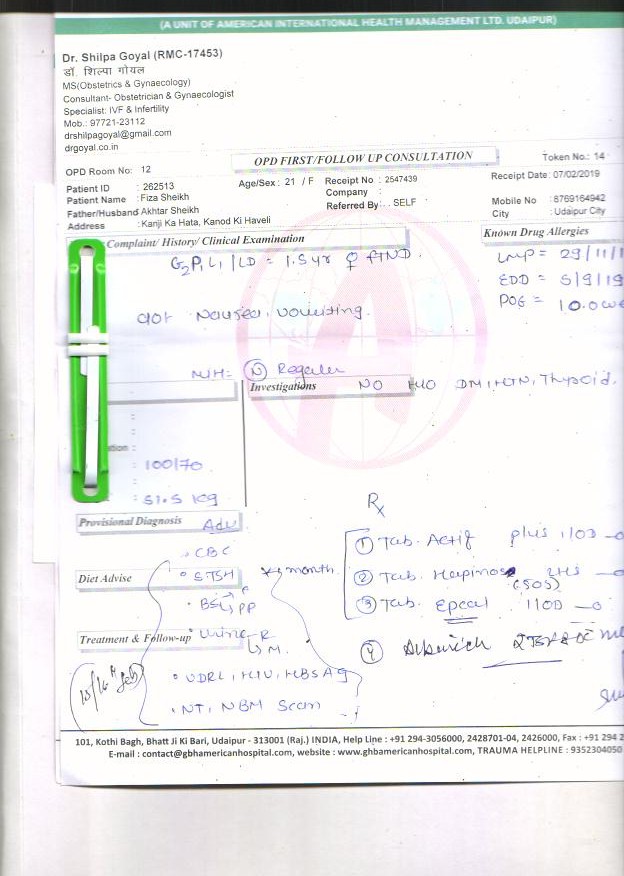 (A UNIT OF AMERICAN INTERNATIONAL HEALTH MANAGEMENT LTD. UDAIPUR)
Dr. Shilpa Goyal (RMC-17453)
डॉ. शिल्पा गोयल
MS(Obstetrics & Gynaecology)
Consultant- Obstetrician & Gynaecologist
Specialist: IVF & Infertility
Mob.: 97721-23112
drshilpagoyal@gmail.com
drgoyal.co.in
OPD FIRST/FOLLOW UP CONSULTATION
Token No.: 14
OPD Room No: 12
Receipt Date: 07/02/2019
Patient ID : 262513
Age/Sex: 21 / F
Receipt No : 2547439
Patient Name : Fiza Sheikh
Company :
Mobile No : 8769164942
Father/Husband Akhtar Sheikh
Referred By: . . SELF
City : Udaipur City
Address : Kanji Ka Hata, Kanod Ki Haveli
Complaint/ History/ Clinical Examination
Known Drug Allergies
G2P1L1 / LD = 1.5 yr ♀ FTND.
LMP = 29/11/1
EDD = 5/9/19
POG = 10.0w
c/o+ Nausea, vomiting.
M/H = (N) Regular
Investigations
NO H/O DM, HTN, Thyroid.
tion :
: 100/70
: 51.5 kg
Rx
Provisional Diagnosis
Adv
① Tab. Actif plus 1 OD
• CBC
Diet Advise
• S.TSH
month
② Tab. 2HS
(SOS)
• BSL F PP
③ Tab. Epcal 1 OD
Treatment & Follow-up
• Urine R
M.
④
15/16th feb
• VDRL, HIV, HBsAg
• NT, NBM Scan
101, Kothi Bagh, Bhatt Ji Ki Bari, Udaipur - 313001 (Raj.) INDIA, Help Line : +91 294-3056000, 2428701-04, 2426000, Fax : +91 294 2
E-mail : contact@gbhamericanhospital.com, website : www.gbhamericanhospital.com, TRAUMA HELPLINE : 9352304050